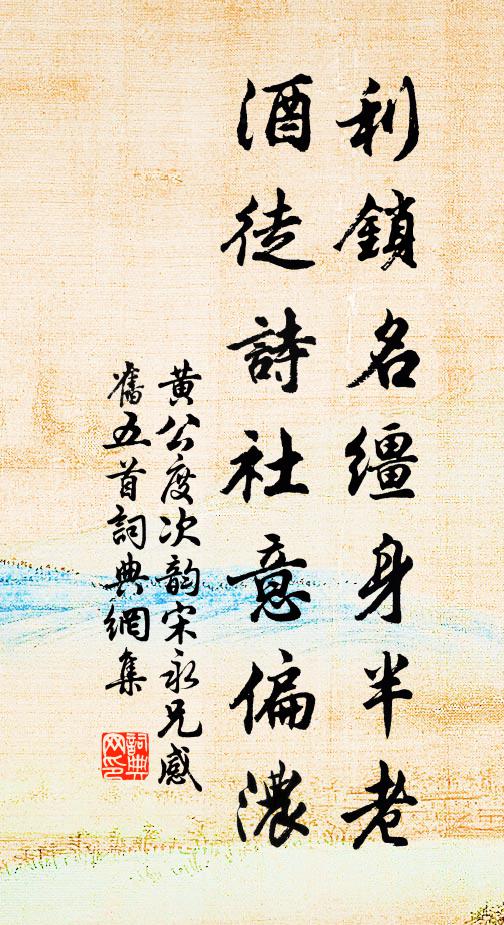 利鎖名繮身半老
酒徒詩社意偏濃
黃公度次韵宋永兄感
舊五首詞典網集
詞典網印